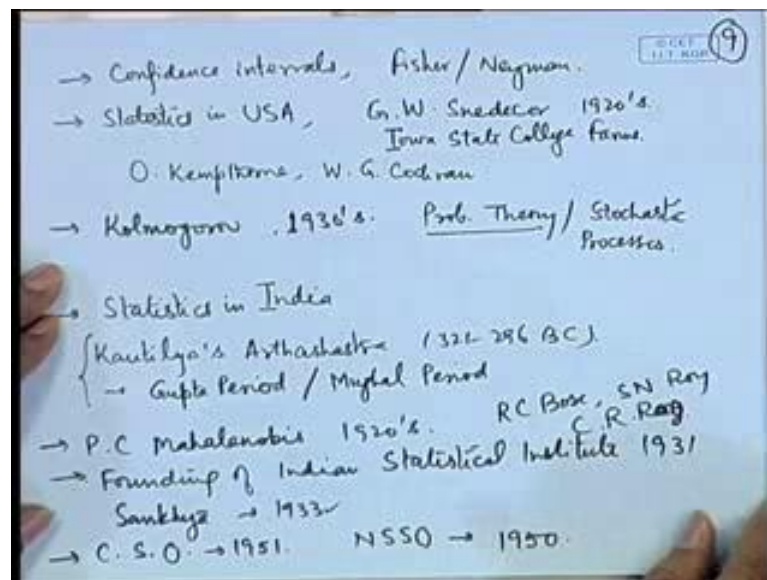 © CET
I.I.T. KGP
9
→ Confidence intervals, Fisher/Neyman.
→ Statistics in USA, G.W. Snedecor 1920's.
Iowa State College Farms.
O. Kempthorne, W. G. Cochran
→ Kolmogorov, 1930's. Prob. Theory / Stochastic
Processes.
→ Statistics in India
Kautilya's Arthashastra (321-296 BC).
→ Gupta Period / Mughal Period
→ P.C Mahalanobis 1920's. RC Bose, SN Roy
C. R. Rao
→ Founding of Indian Statistical Institute 1931
Sankhya → 1933
→ C. S. O. → 1951. NSSO → 1950.